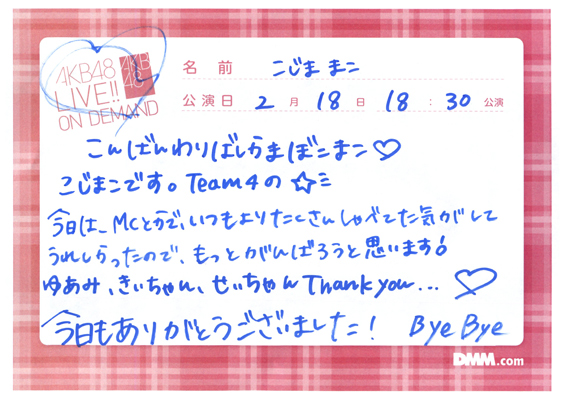 AKB48
LIVE!!
ON DEMAND
AKB
48
名前 こじま まこ
公演日 2 月 18 日 18 : 30 公演
こんばんわりばしかまぼこまこ♡
こじまこです。Team4の☆ミ
今日は、MCとかで、いつもよりたくさんしゃべてた気がして
うれしかったので、もっとがんばろうと思います!
ゆあみ、きぃちゃん、せぃちゃん Thank you... ♡
今日もありがとうございました! Bye Bye
DMM.com